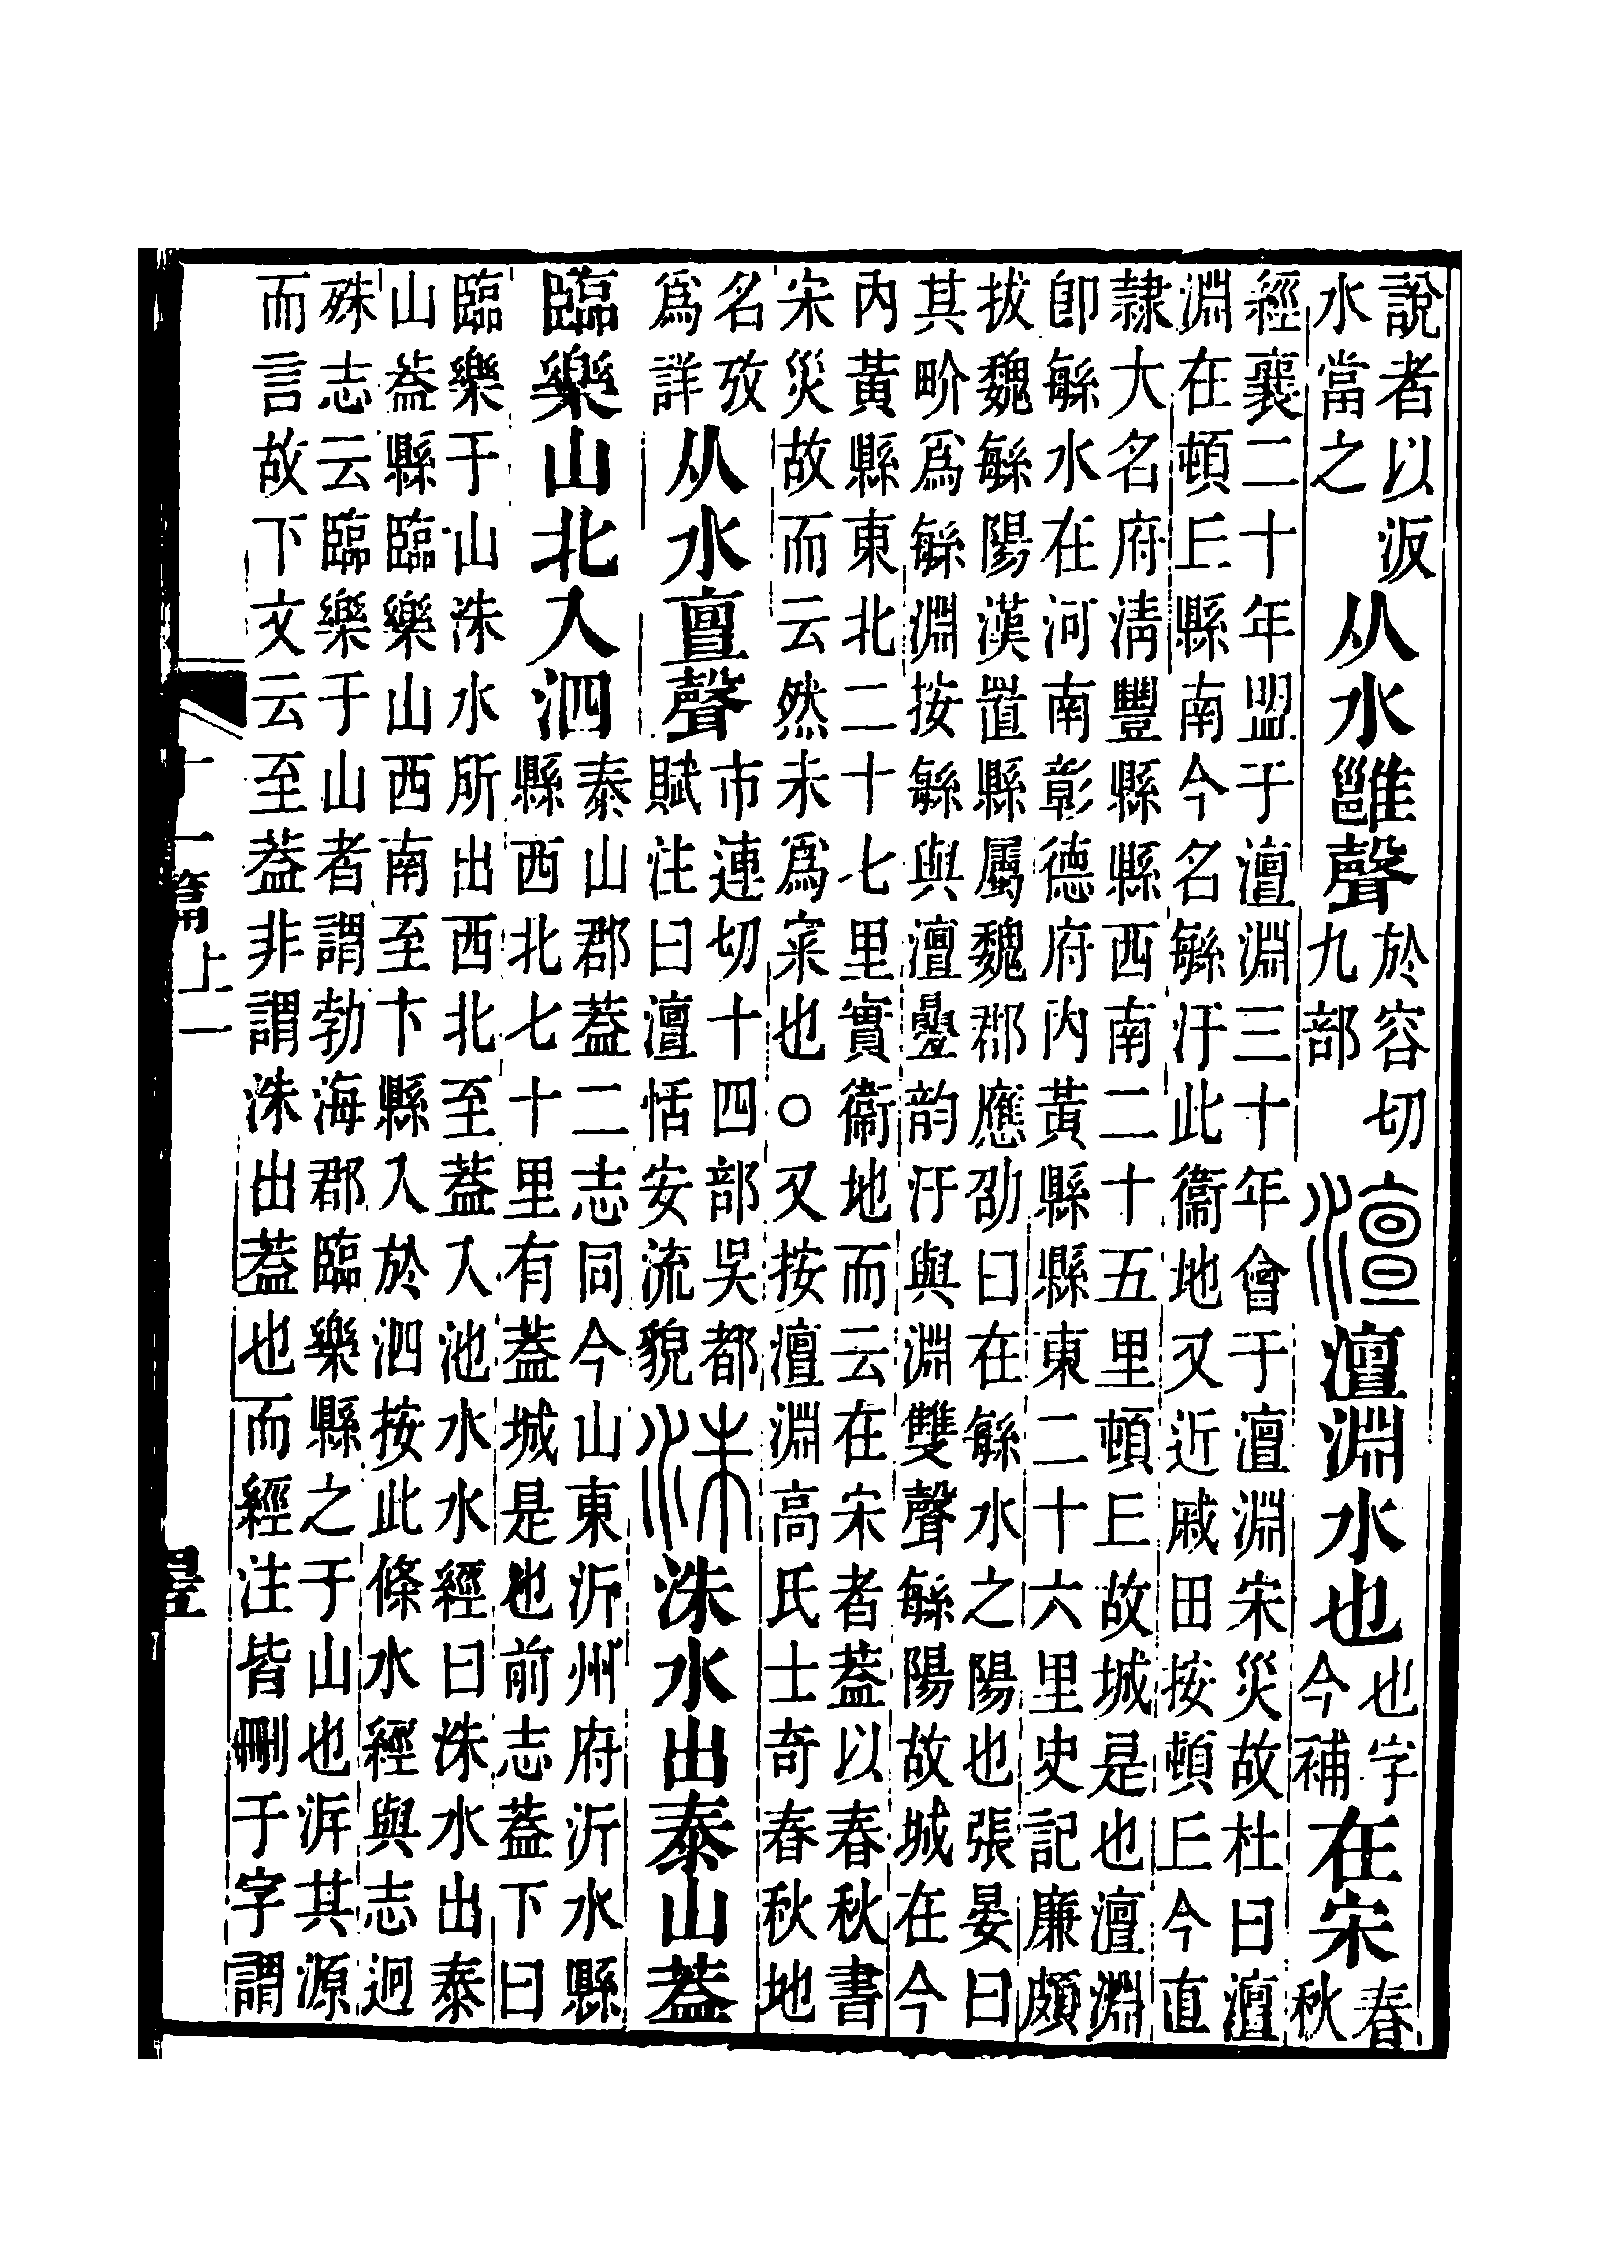 說者以汳
水當之
从水雝聲
於容切
九部
澶淵水也
也字
今補
在宋
春
秋
經襄二十年盟于澶淵三十年會于澶淵宋災故杜曰澶
淵在頓丘縣南今名緐汙此衞地又近戚田按頓丘今直
隸大名府淸豐縣縣西南二十五里頓丘故城是也澶淵
卽緐水在河南彰德府內黃縣縣東二十六里史記廉頗
拔魏緐陽漢置縣屬魏郡應劭曰在緐水之陽也張晏曰
其畍爲緐淵按緐與澶曡韵汙與淵雙聲緐陽故城在今
內黃縣東北二十七里實衞地而云在宋者葢以春秋書
宋災故而云然未爲宷也○又按澶淵高氏士奇春秋地
名攷
爲詳
从水亶聲
市連切十四部吳都
賦注曰澶恬安流貌
洙水出泰山葢
臨樂山北入泗
泰山郡葢二志同今山東沂州府沂水縣
縣西北七十里有葢城是也前志葢下曰
臨樂于山洙水所出西北至葢入池水水經曰洙水出泰
山葢縣臨樂山西南至卞縣入於泗按此條水經與志迥
殊志云臨樂于山者謂勃海郡臨樂縣之于山也泝其源
而言故下文云至葢非謂洙出葢也而經注皆刪于字謂
十一篇上一